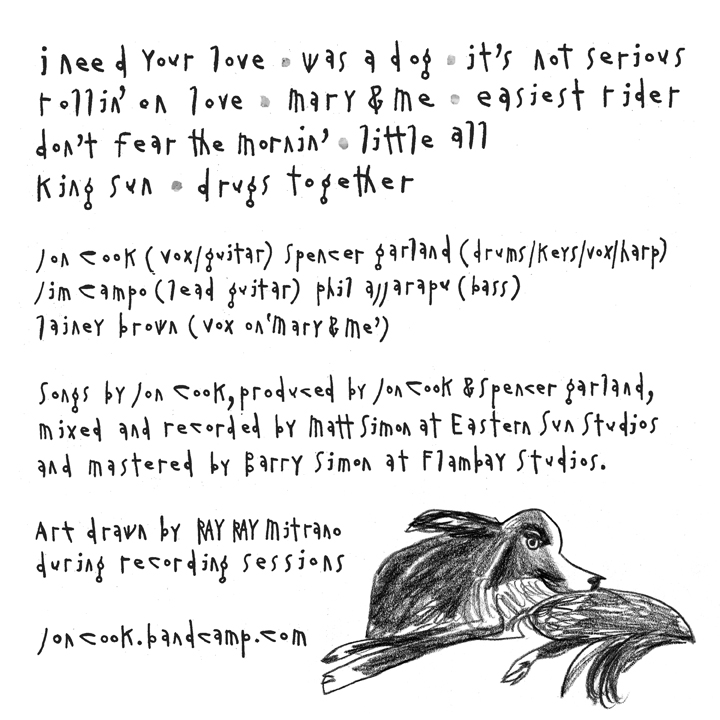 i need your love • was a dog • it's not serious
rollin' on love • mary & me • easiest rider
don't fear the mornin' • little all
king sun • drugs together
jon cook (vox/guitar) spencer garland (drums/keys/vox/harp)
jim campo (lead guitar) phil ajjarapu (bass)
lainey brown (vox on 'mary & me')
songs by jon cook, produced by jon cook & spencer garland,
mixed and recorded by matt simon at Eastern Sun Studios
and mastered by Barry Simon at Flambay Studios.
Art drawn by RAY RAY Mitrano
during recording sessions
joncook.bandcamp.com